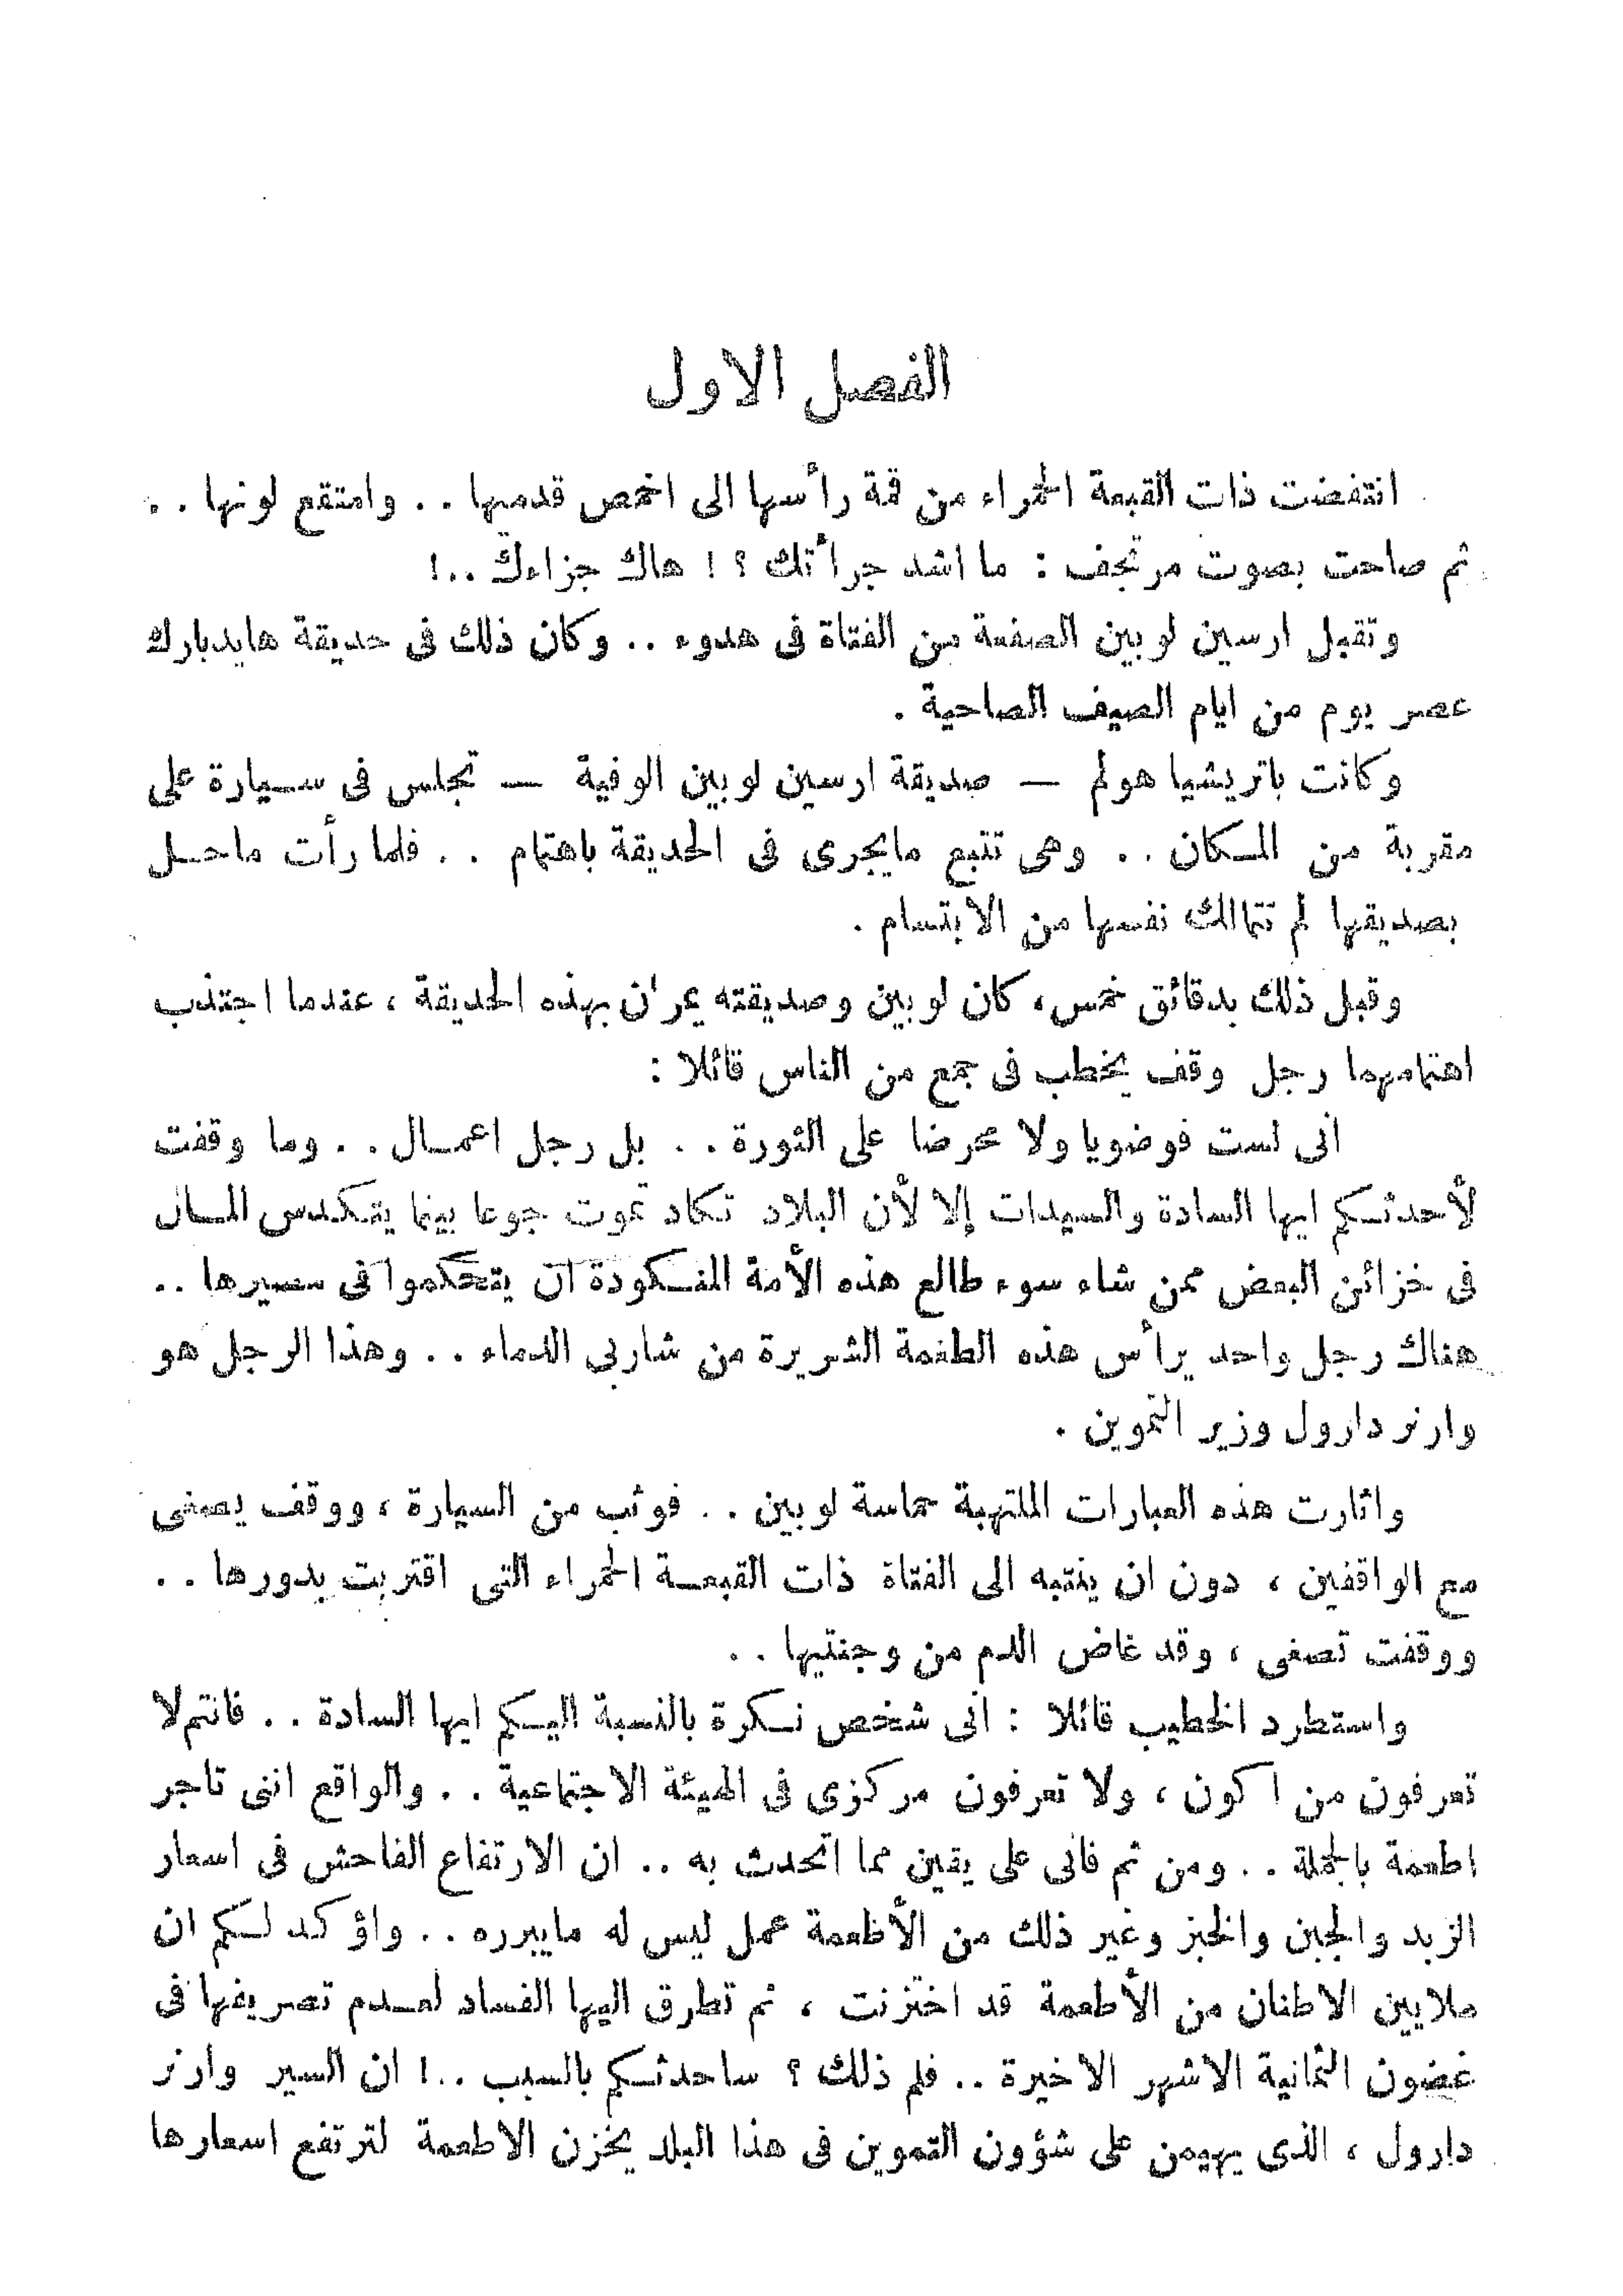 الفصل الاول
انتفضت ذات القبعة الحمراء من قمة رأسها الى اخمص قدميها . . وامتقع لونها . .
ثم صاحت بصوت مرتجف : ما اشد جرأتك ؟ ! هاك جزاءك ..!
وتقبل ارسين لوبين الصفعة من الفتاة فى هدوء .. وكان ذلك فى حديقة هايدبارك
عصر يوم من ايام الصيف الصاحية .
وكانت باتريشيا هولم — صديقة ارسين لوبين الوفية — تجلس فى سيارة على
مقربة من المكان . . وهى تتبع مايجرى فى الحديقة باهتمام . . فلما رأت ماحل
بصديقها لم تتمالك نفسها من الابتسام .
وقبل ذلك بدقائق خمس، كان لوبين وصديقته يمران بهذه الحديقة ، عندما اجتذب
اهتمامهما رجل وقف يخطب فى جمع من الناس قائلا :
انى لست فوضويا ولا محرضا على الثورة . . بل رجل اعمال . . وما وقفت
لأحدثكم ايها السادة والسيدات إلا لأن البلاد تكاد تموت جوعا بينما يتكدس المال
فى خزائن البعض ممن شاء سوء طالع هذه الأمة المنكودة ان يتحكموا فى مصيرها ..
هناك رجل واحد يرأس هذه الطغمة الشريرة من شاربى الدماء . . وهذا الرجل هو
وارنر دارول وزير التموين .
واثارت هذه العبارات الملتهبة حماسة لوبين . . فوثب من السيارة ، ووقف يصغى
مع الواقفين ، دون ان ينتبه الى الفتاة ذات القبعة الحمراء التى اقتربت بدورها . .
ووقفت تصغى ، وقد غاض الدم من وجنتيها . .
واستطرد الخطيب قائلا : انى شخص نكرة بالنسبة اليكم ايها السادة . . فانتم لا
تعرفون من اكون ، ولا تعرفون مركزى فى الهيئة الاجتماعية . . والواقع اننى تاجر
اطعمة بالجملة . . ومن ثم فانى على يقين مما اتحدث به .. ان الارتفاع الفاحش فى اسعار
الزبد والجبن والخبز وغير ذلك من الأطعمة عمل ليس له مايبرره . . واؤكد لكم ان
ملايين الاطنان من الأطعمة قد اختزنت ، ثم تطرق اليها الفساد لعدم تصريفها فى
غضون الثمانية الاشهر الاخيرة .. فلم ذلك ؟ ساحدثكم بالسبب ..! ان السير وارنر
دارول ، الذى يهيمن على شؤون التموين فى هذا البلد يخزن الاطعمة لترتفع اسعارها